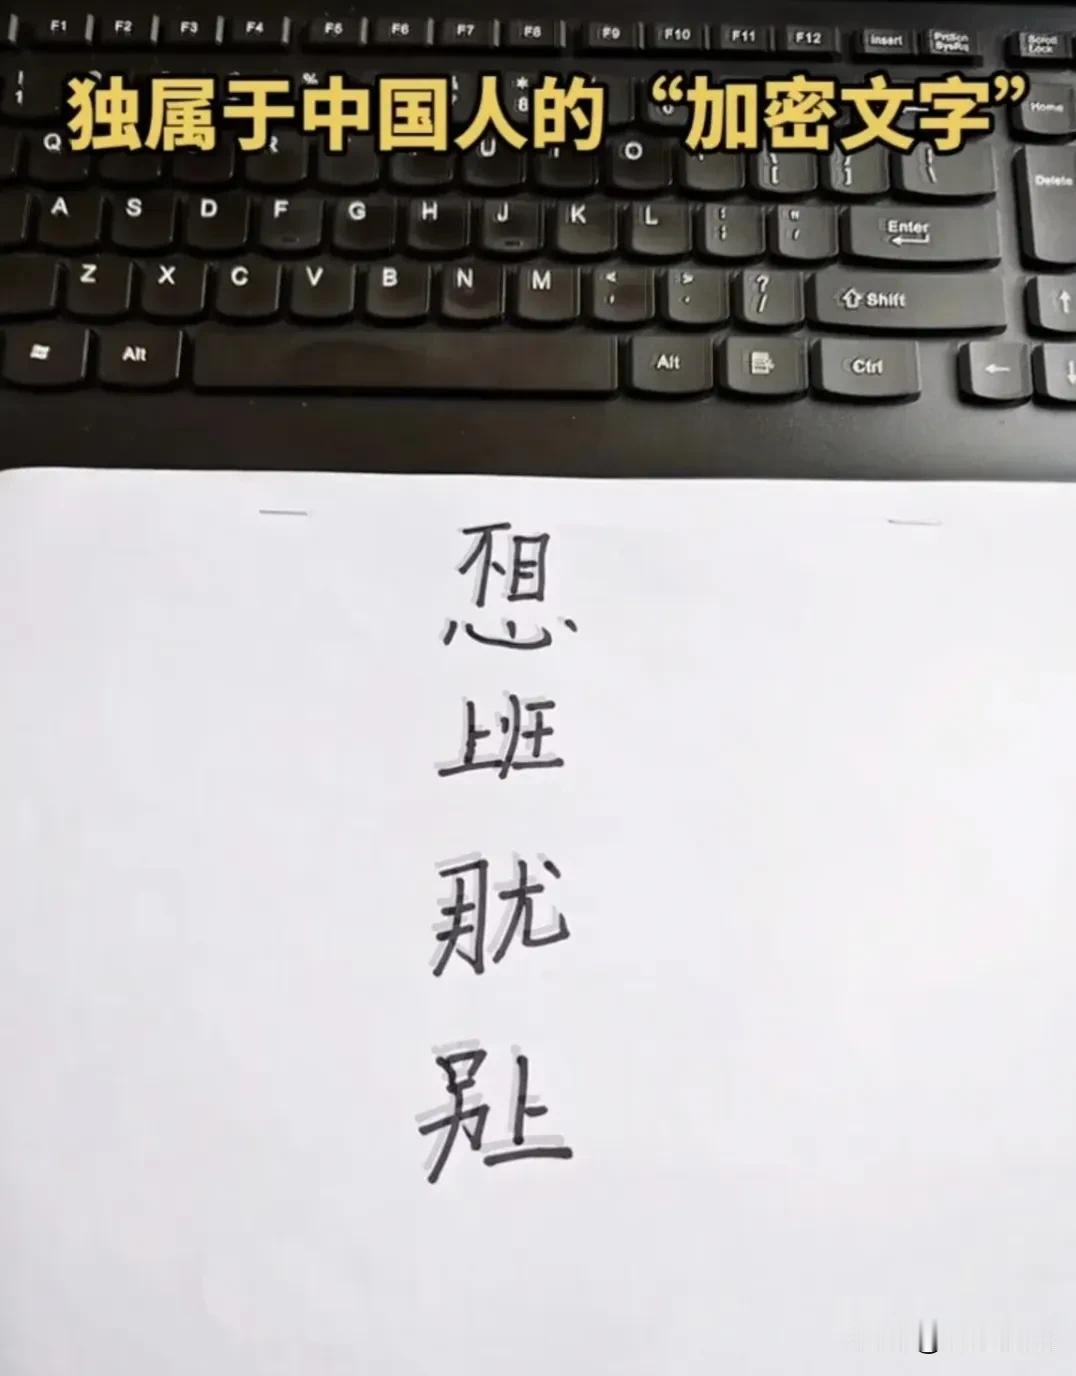 F1 F2 F3 F4 F5 F6 F7 F8 F9 F10 F11 F12 Insert PrtScn SysRq Scroll Lock
独属于中国人的“加密文字”
Home
Q U O Delete
A S D F G H J K L Enter
Z X C V B N M Shift
Alt Alt Ctrl
不想
上班
那就
别上